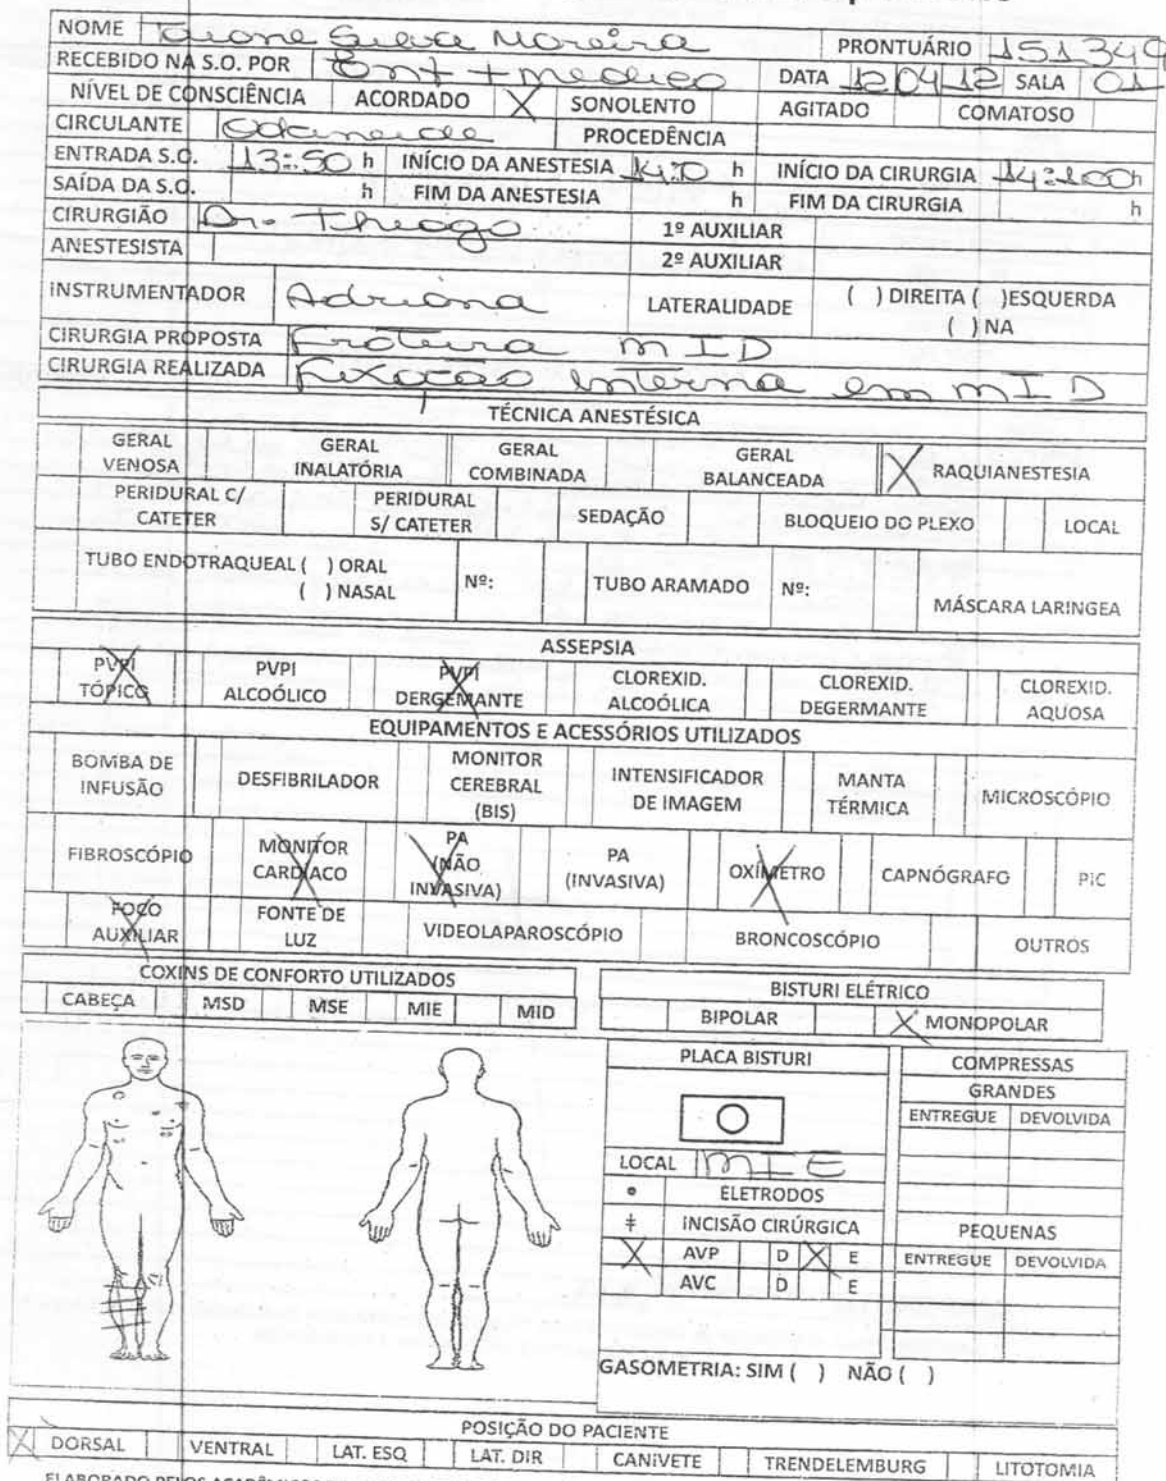 NOME Taione Silva Moreira PRONTUÁRIO 151.349
RECEBIDO NA S.O. POR Enf + medico DATA 12 04 12 SALA 01
NÍVEL DE CONSCIÊNCIA ACORDADO X SONOLENTO AGITADO COMATOSO
CIRCULANTE PROCEDÊNCIA
ENTRADA S.O. 13:50 h INÍCIO DA ANESTESIA 14:0 h INÍCIO DA CIRURGIA 14:100h
SAÍDA DA S.O. h FIM DA ANESTESIA h FIM DA CIRURGIA h
CIRURGIÃO Dr. Thiago 1º AUXILIAR
ANESTESISTA 2º AUXILIAR
INSTRUMENTADOR Adriana LATERALIDADE ( ) DIREITA ( )ESQUERDA
( ) NA
CIRURGIA PROPOSTA Fratura MID
CIRURGIA REALIZADA Fixação interna em MID
TÉCNICA ANESTÉSICA
GERAL VENOSA GERAL INALATÓRIA GERAL COMBINADA GERAL BALANCEADA X RAQUIANESTESIA
PERIDURAL C/ CATETER PERIDURAL S/ CATETER SEDAÇÃO BLOQUEIO DO PLEXO LOCAL
TUBO ENDOTRAQUEAL ( ) ORAL
( ) NASAL Nº: TUBO ARAMADO Nº: MÁSCARA LARINGEA
ASSEPSIA
PVPI TÓPICO PVPI ALCOÓLICO PVPI DERGEMANTE CLOREXID. ALCOÓLICA CLOREXID. DEGERMANTE CLOREXID. AQUOSA
EQUIPAMENTOS E ACESSÓRIOS UTILIZADOS
BOMBA DE INFUSÃO DESFIBRILADOR MONITOR CEREBRAL (BIS) INTENSIFICADOR DE IMAGEM MANTA TÉRMICA MICROSCÓPIO
FIBROSCÓPIO MONITOR CARDÍACO PA (NÃO INVASIVA) PA (INVASIVA) OXÍMETRO CAPNÓGRAFO PIC
FOCO AUXILIAR FONTE DE LUZ VIDEOLAPAROSCÓPIO BRONCOSCÓPIO OUTROS
COXINS DE CONFORTO UTILIZADOS
CABEÇA MSD MSE MIE MID
BISTURI ELÉTRICO
BIPOLAR X MONOPOLAR
PLACA BISTURI COMPRESSAS
GRANDES
ENTREGUE DEVOLVIDA
LOCAL MIE
ELETRODOS
INCISÃO CIRÚRGICA PEQUENAS
X AVP D X E ENTREGUE DEVOLVIDA
AVC D E
GASOMETRIA: SIM ( ) NÃO ( )
POSIÇÃO DO PACIENTE
X DORSAL VENTRAL LAT. ESQ LAT. DIR CANIVETE TRENDELEMBURG LITOTOMIA
ELABORADO PELOS ACADÊMICOS